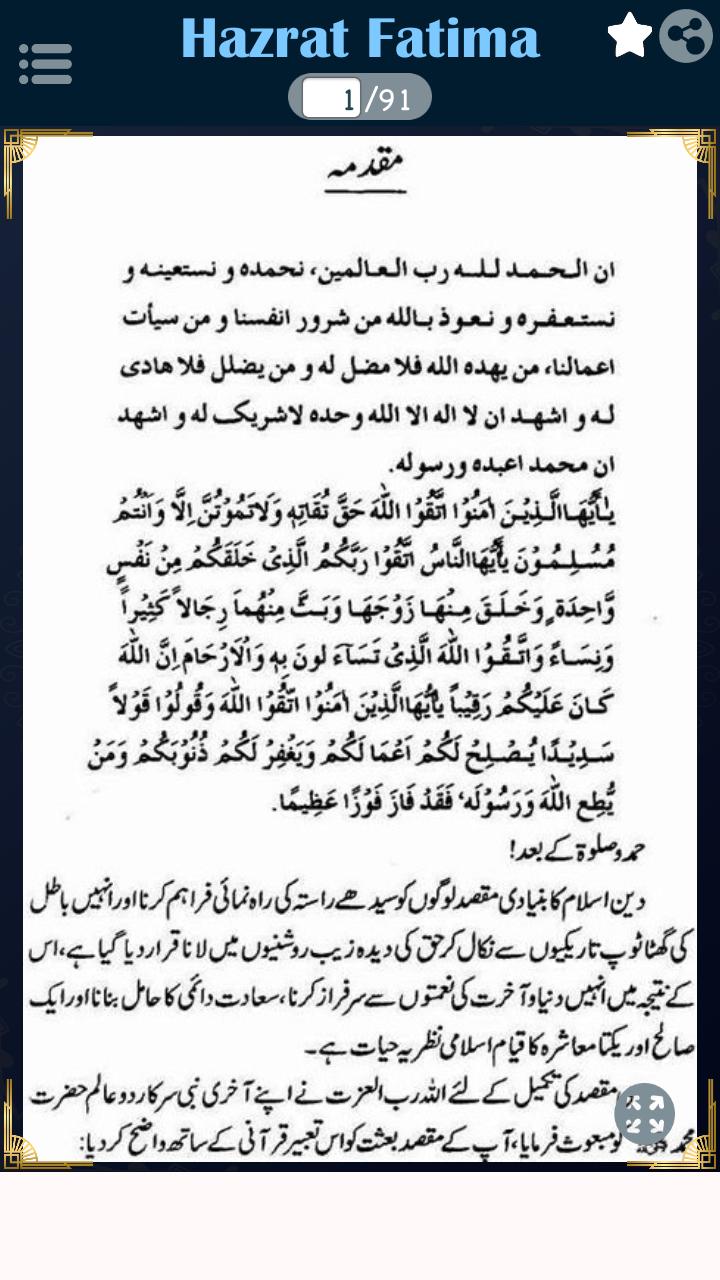 Hazrat Fatima
1 /91
مقدمہ
ان الـحـمـد لـلـه رب العالمين، نحمده و نستعينه و
نستعفره و نعوذ بالله من شرور انفسنا و من سيأت
اعمالنا، من يهده الله فلا مضل له و من يضلل فلا هادى
له و اشهد ان لا اله الا الله وحده لاشريك له و اشهد
ان محمد اعبده ورسوله.
يٰٓاَيُّهَا الَّذِيْنَ اٰمَنُوْا اتَّقُوْا اللّٰهَ حَقَّ تُقَاتِهٖ وَلَاتَمُوْتُنَّ اِلَّا وَاَنْتُمْ
مُسْلِمُوْنَ يٰٓاَيُّهَاالنَّاسُ اتَّقُوْا رَبَّكُمُ الَّذِىْ خَلَقَكُمْ مِنْ نَفْسٍ
وَّاحِدَةٍ وَخَلَقَ مِنْهَا زَوْجَهَا وَبَثَّ مِنْهُمَا رِجَالاً كَثِيْراً
وَنِسَاءً وَاتَّقُوْا اللّٰهَ الَّذِىْ تَسَآءَ لونَ بِهٖ وَالْاَرْحَامَ اِنَّ اللّٰهَ
كَانَ عَلَيْكُمْ رَقِيْباً يٰٓاَيُّهَاالَّذِيْنَ اٰمَنُوْا اتَّقُوْا اللّٰهَ وَقُولُوْا قَوْلاً
سَدِيْدًا يُصْلِحْ لَكُمْ اَعْمَا لَكُمْ وَيَغْفِرْ لَكُمْ ذُنُوْبَكُمْ وَمَنْ
يُّطِعِ اللّٰهَ وَرَسُوْلَه‘ فَقَدْ فَازَ فَوْزًا عَظِيمًا.
حمد وصلوۃ کے بعد!
دین اسلام کا بنیادی مقصد لوگوں کو سیدھے راستہ کی راہ نمائی فراہم کرنا اور انہیں باطل
کی گھٹا ٹوپ تاریکیوں سے نکال کر حق کی دیدہ زیب روشنیوں میں لانا قرار دیا گیا ہے، اس
کے نتیجہ میں انہیں دنیا و آخرت کی نعمتوں سے سرفراز کرنا، سعادت دائمی کا حامل بنانا اور ایک
صالح اور یکتا معاشرہ کا قیام اسلامی نظریہ حیات ہے۔
مقصد کی تکمیل کے لئے اللہ رب العزت نے اپنے آخری نبی سرکار دو عالم حضرت
محمد مبعوث فرمایا، آپ کے مقصد بعثت کو اس تعبیر قرآنی کے ساتھ واضح کر دیا: